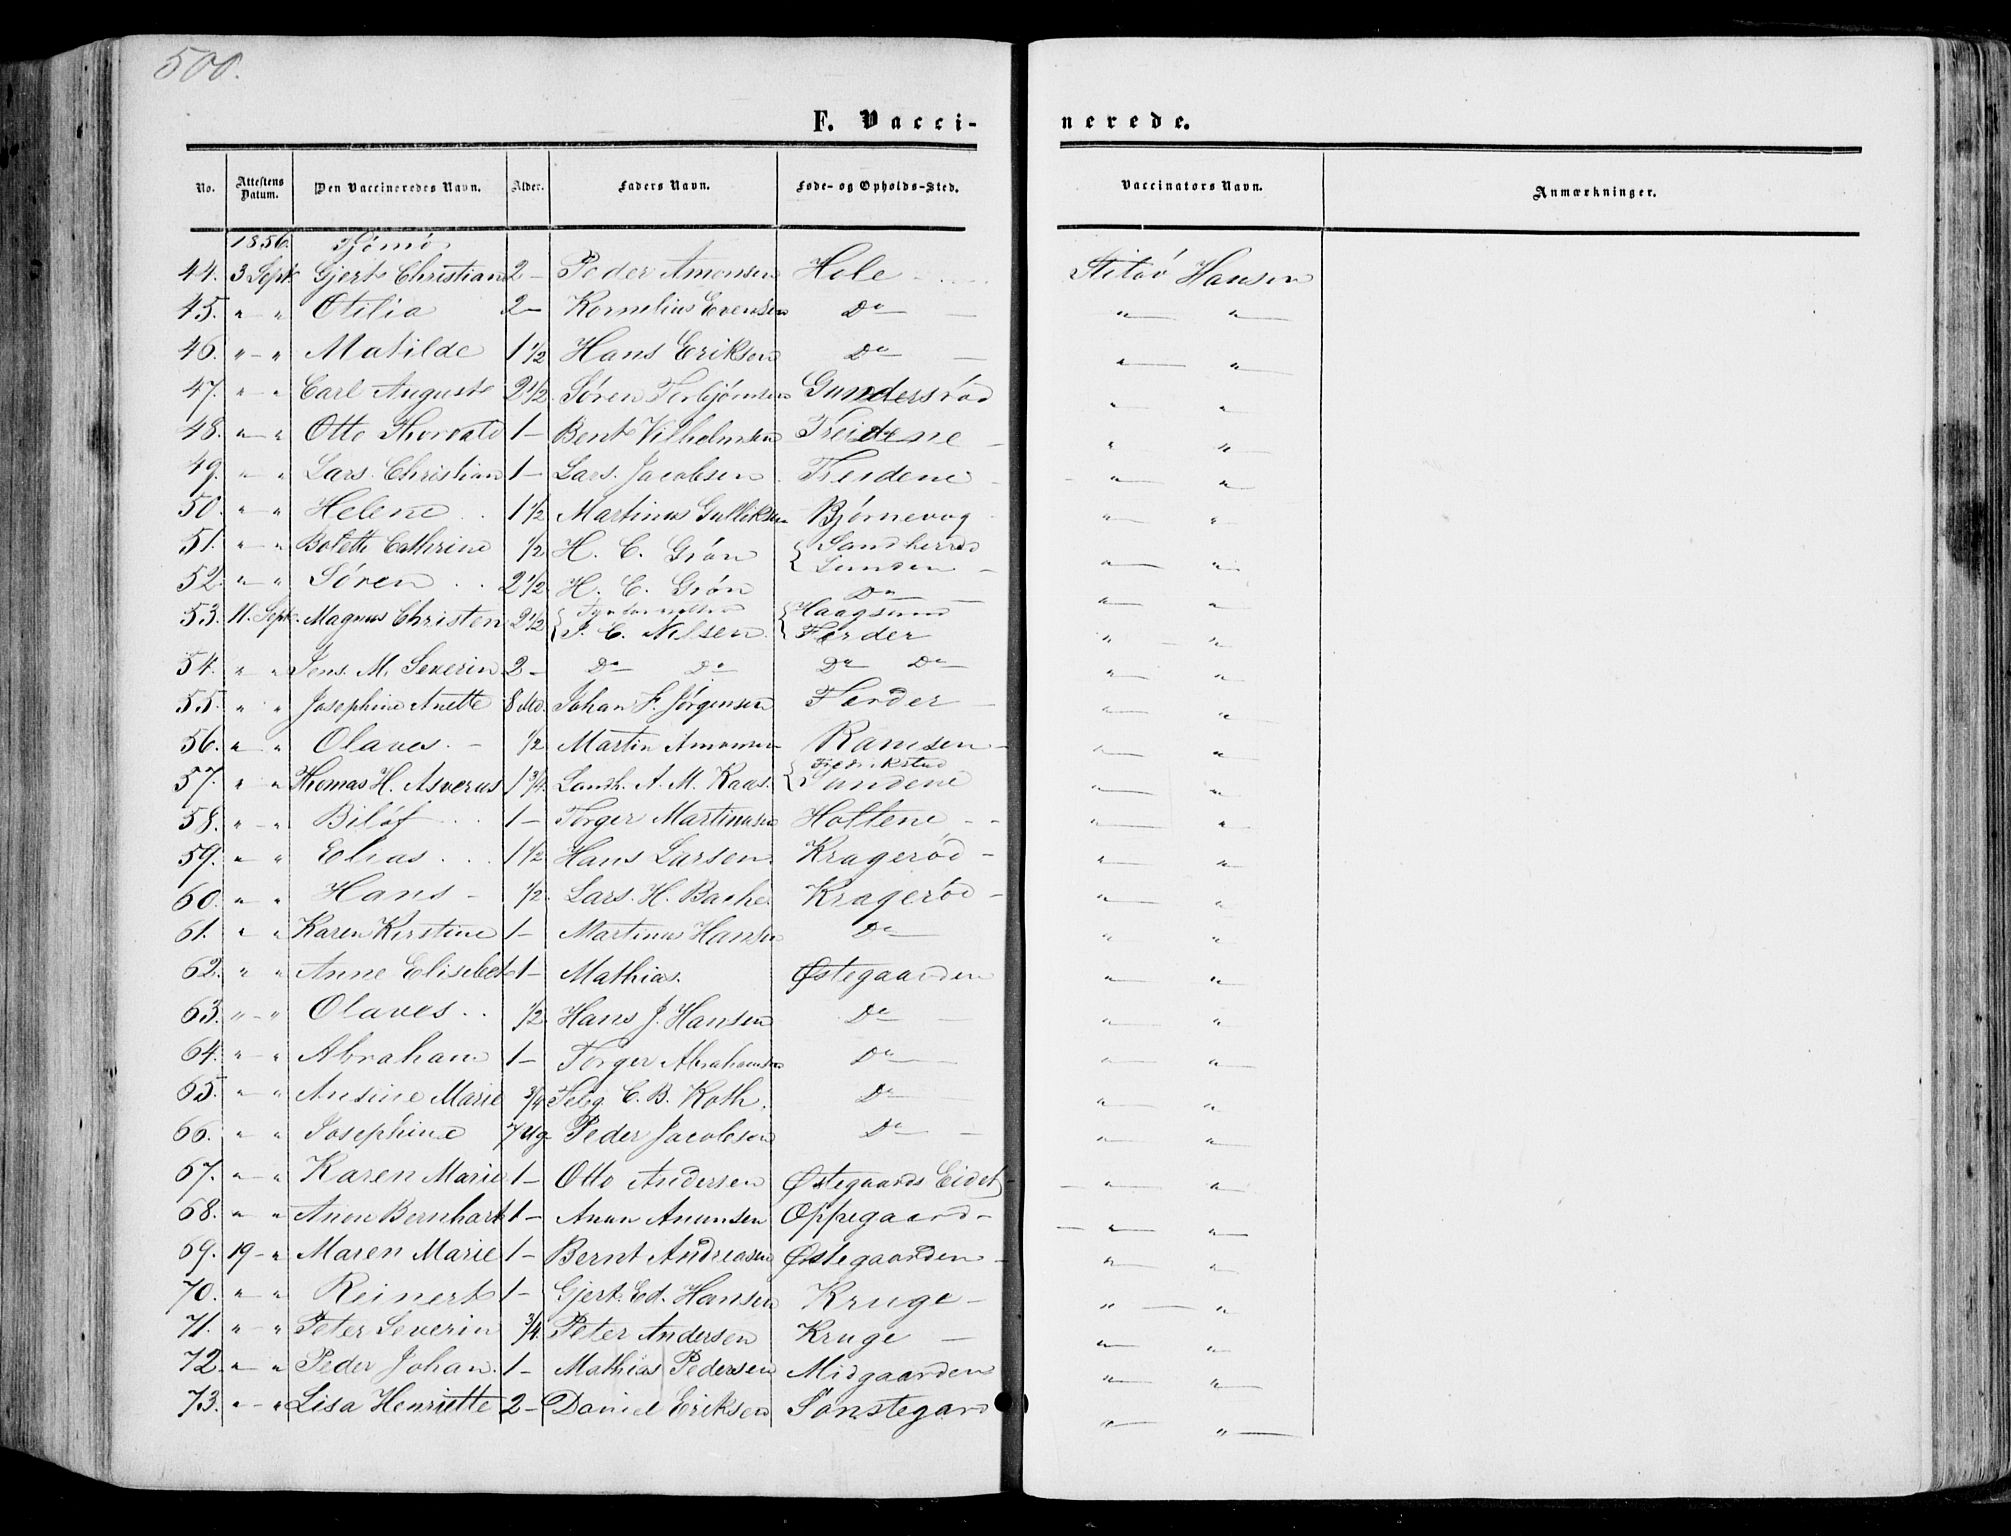 500.
F. Vacci-
nerede.
No. Attestens Datum. Den Vaccineredes Navn. Alder. Faders Navn. Føde- og Opholds-Sted. Vaccinators Navn. Anmærkninger.
1856. Tjømø
44. 3 Sept. Gjert Christian 2 - Peder Amonsen Hole - Hansen
45. " - " Otilia 2 - Kornelius Evensen Do - " "
46. " - " Matilde 1 1/2 Hans Eriksen Do - " "
47. " - " Carl August 2 1/2 Søren Torbjørnsen Gundersrød " "
48. " - " Otto Thorvald 1 - Bent Vilhelmsen Treidene - " "
49. " - " Lars Christian 1 - Lars Jacobsen Treidene - " "
50. " - " Helene 1 1/2 Martinus Gulliksen Bjørnevog " "
51. " - " Bolette Cathrine 1/2 H. C. Grøn { Sandherred " "
52. " - " Søren 2 1/2 H. C. Grøn Do " "
53. 11. Sept. Magnus Christen 2 1/2 { J. C. Nilsen { Haagsund Færder " "
54. " - " Jens M. Severin 2 - Do Do Do Do " "
55. " - " Josephine Anette 8 Md. Johan F. Jørgensen Færder - " "
56. " - " Olaves - 1/2 Martin Amonsen Ramsen - " "
57. " - " Thomas H. Asverus 1 3/4 Landh. A. M. Kaas. { Fredrikstad Sundene " "
58. " - " Biløf 1 - Torger Martinusen Holtene - - " "
59. " - " Elias 1 1/2 Hans Larsen Kragerød - " "
60. " - " Hans - 1/2 Lars H. Bache Kragerød - " "
61. " - " Karen Kirstine 1 - Martinus Hansen Do " "
62. " - " Anne Elisebet 1 - Mathias. Østegaarden " "
63. " - " Olaves 1/2 Hans J. Hansen Do - " "
64. " - " Abraham 1 - Torger Abrahamsen Do " "
65. " - " Ansine Marie 3/4 C. B. Roth. Do " "
66. " - " Josephine 7 Ug. Peder Jacobsen Do - " "
67. " - " Karen Marie 1 - Otto Andersen Østegaards Eidet - " "
68. " - " Anon Bernhart 1 - Anun Anunsen Oppegaard - " "
69. 19 - " Maren Marie 1 - Bernt Andreasen Østegaarden - " "
70. " - " Reinert 1 - Gjert Ed. Hansen Kruge - " "
71. " - " Peter Severin 3/4 Peter Andersen Kruge - " "
72. " - " Peder Johan. 1 - Mathias Pedersen Midgaarden " "
73. " - " Lisa Henriette 2 - Daniel Eriksen Sønstegard " "